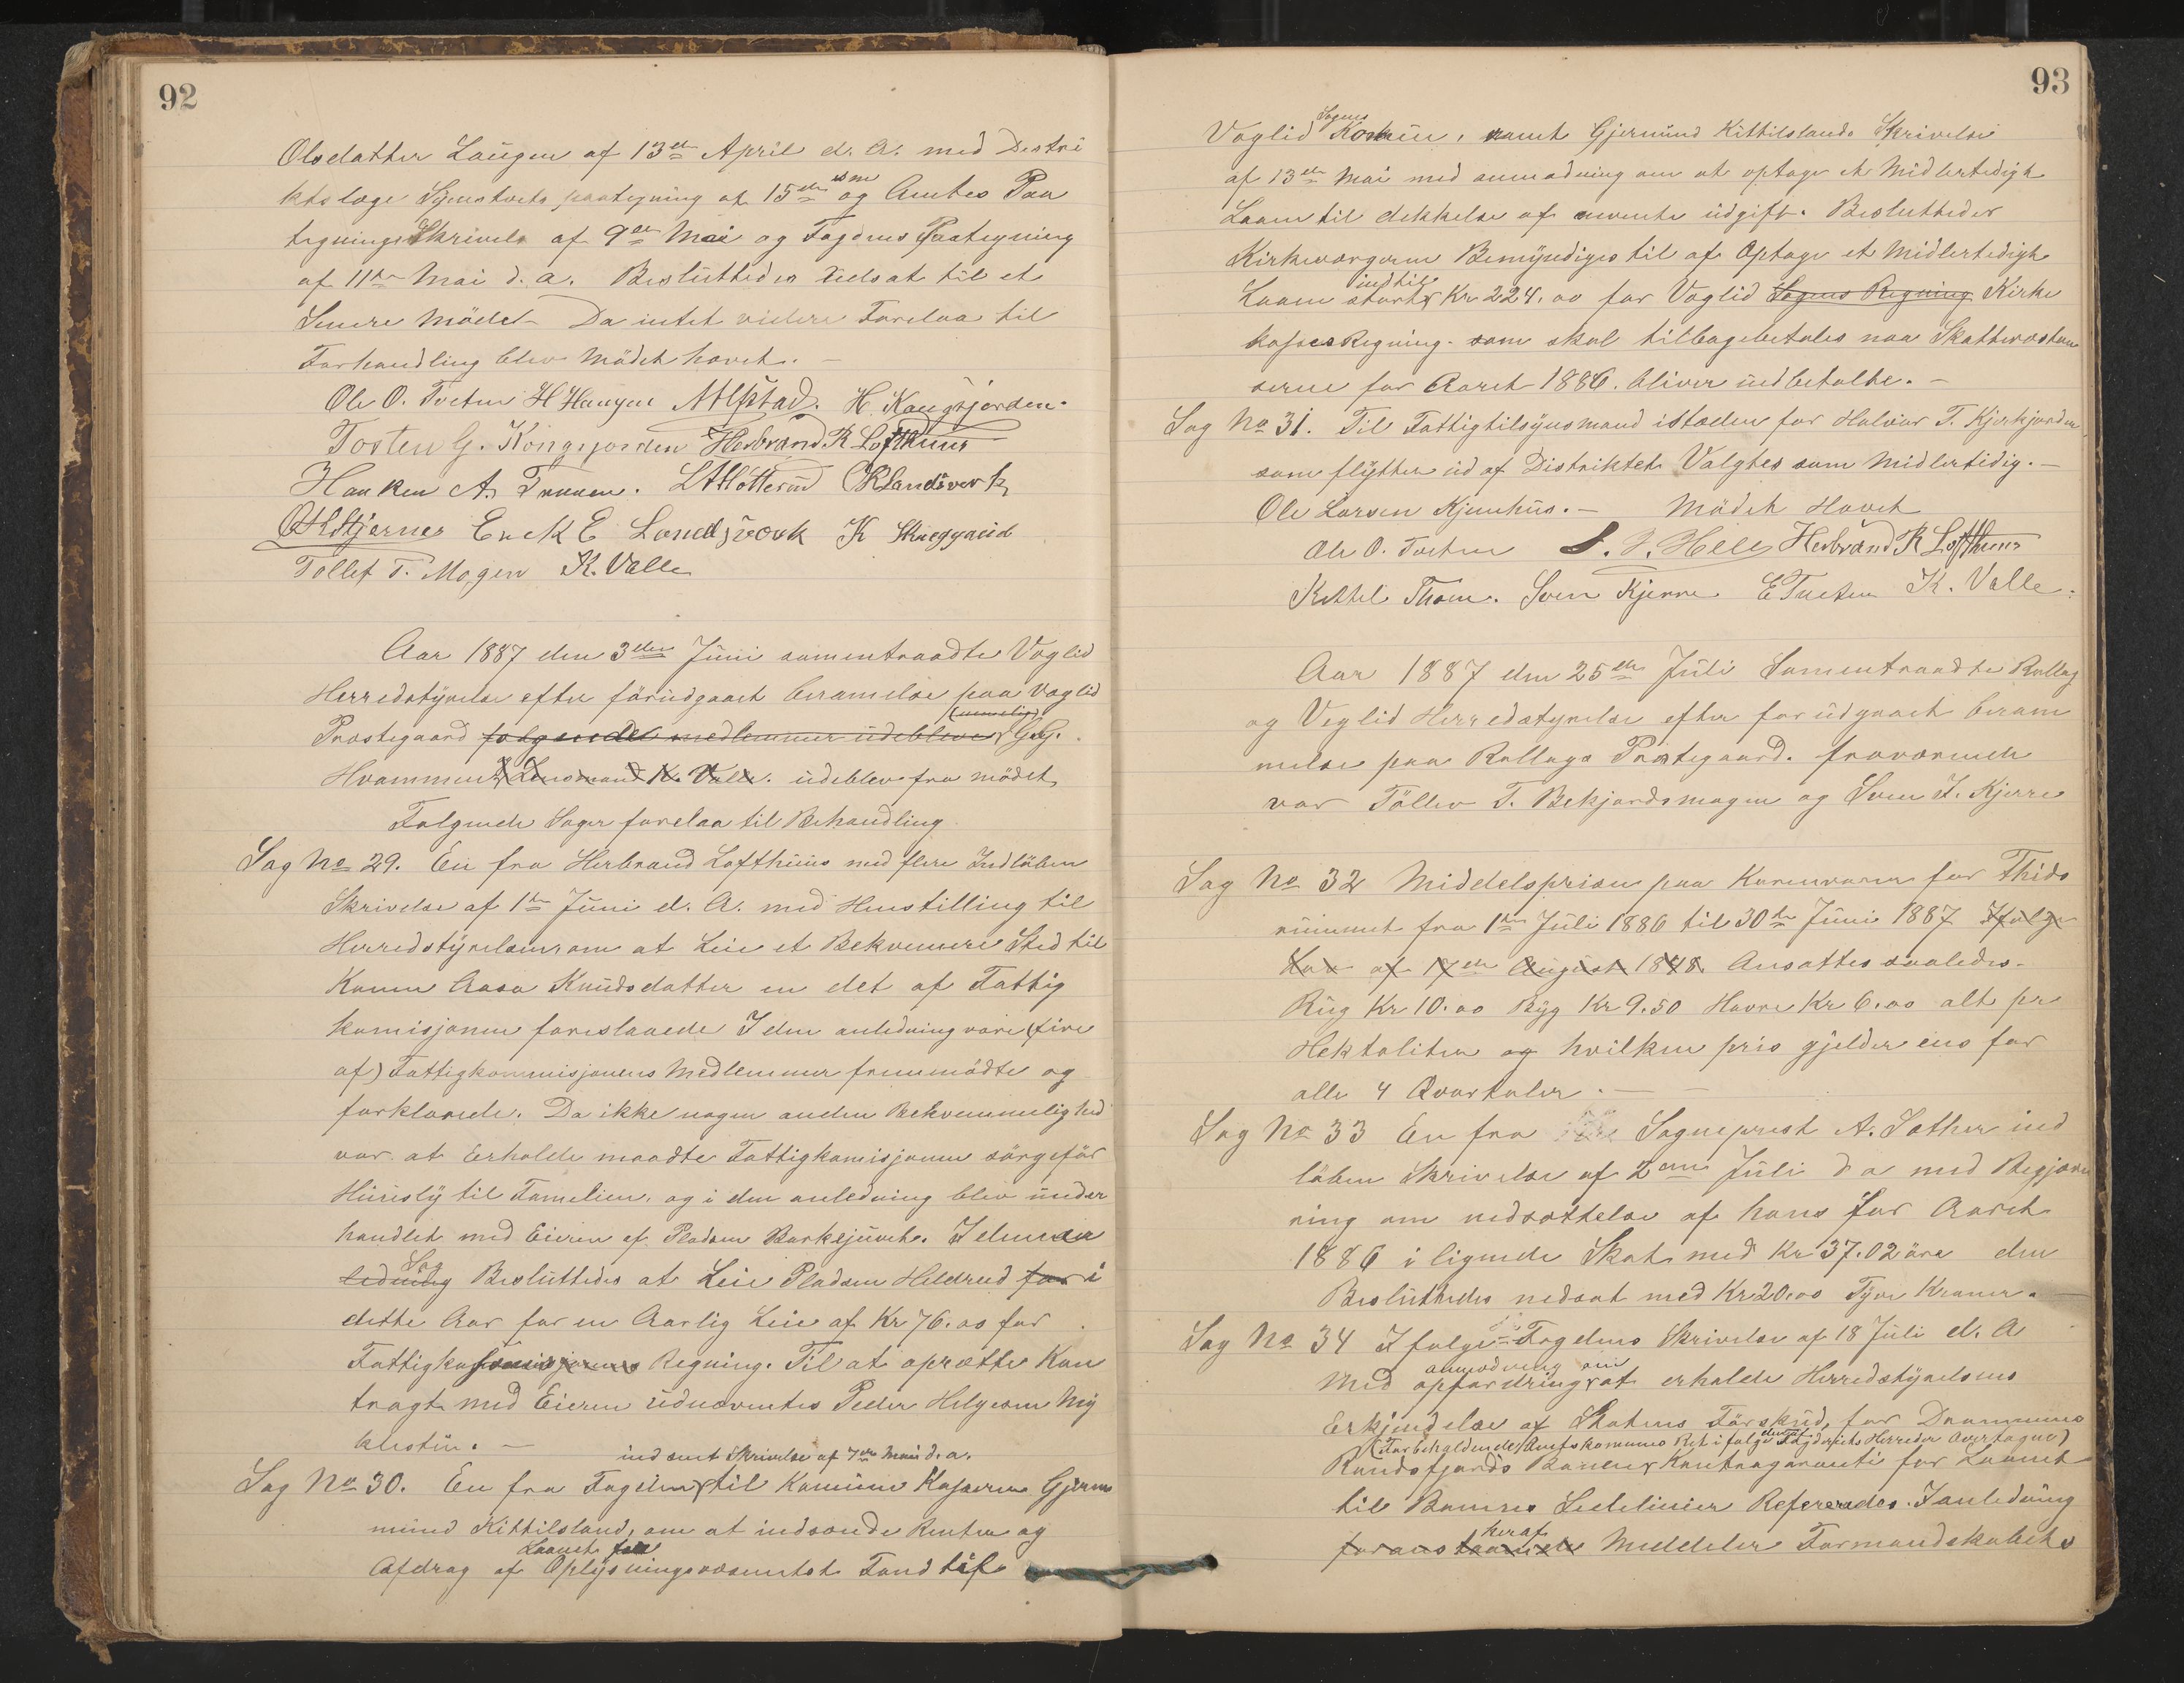 92
Olsdatter Laugen af 13de April d. A. med Destri
ktslæge paategning af 15de dsm og Amtes Paa
tegnings Skrivels af 9de Mai og Fogdens Paategning
af 11te Mai d. a. Besluttedes Udsat til et
Senere Møde – Da intet videre Forelaa til
Forhandling blev Mödet hævet. –
Ole O. Tveten H Haugen H. Kongsjorden.
Tosten G. Kongsjorden Herbrand R Lofthuus
Haaken A. OKLandsverk
Erik E Landsverk K
Tollef T. Mogen K. Valle
Aar 1887 den 3die Juni samentraadte Væglid
Herredstyrelse efter forudgaaet beramelse paa Væglid
(nemelig)
Præstegaard følgende medlemmer udebleve G.G.
Hvammen, Lensmand K. Valle. udeblev fra mödet,
Følgende Sager forelaa til Behandling
Sag No 29. En fra Herbrand Lofthuus med flere Indløben
Skrivelse af 1te Juni d. A. med Henstilling til
Herredstyrelsen om at Leie et Bekvemere Sted til
Konen Aase Knudsdatter en det af Fattig
komisjonen foreslaaede I den anledning vare (fire
af) Fattigkommisjonens Medlemmer fremmödte og
forklarede. Da ikke nogen anden Bekvemmelighed
var at Erholde maadte Fattigkomisjonen sörgefor
Huusly til Familien. og i den anledning blev under
handlet med Eieren af Pladsen I denne
Sag
ledning Besluttedes at Leie Pladsen Heldrud for i
dette Aar for en Aarlig Leie af Kr 76.00 for
Fattigkomisjonens Regning. Til at oprætte Kon
tragt med Eieren udnævntes Peder Helgesen My
klestu. –
indsent Skrivelse af 7de Mai d. a.
Sag No 30. En fra Fogden til Komune Kasseren Gjerm
mund Kittilsland, om at indsænde Renter og
Laanet
Afdrag af Oplysningsvæsentet Fond til
93
Sogns
Væglid samt Gjermund Kittilslands Skrivelse
af 13de Mai med anmodning om at optage et Midlertidigt
Laan til dækkelse af nævnte udgift. Besluttedes
Kirkeværgeren Bemyndiges til at Optage et Midlertidigt
indtil
Laan stort Kr 224.00 for Væglid Sogns Regning Kirke
kasses Regning. som skal tilbagebetales naar Skatterestan
serne for Aaret 1886. bliver indbetalte. –
Sag No 31. Til Fattigtilsynsmand istæden for Halvor T. Kjerkjorden
som flytter ud af Distriktet Valgtes som Midlertidig. –
Ole Larsen Kjemhus. – Mödet Hævet
Ole O. Tveten Herbrand R Lofthuus
Kittil Thoen. Sven Kjerre E Tveten K. Valle.
Aar 1887 den 25de Juli Samentraadte Rollag
og Veglid Herredstyrelse efter forudgaaet beram
melse paa Rollags Præstegaard. fraværende
var Töllev T. Bekjordsmogen og Sven J. Kjerre
Sag No 32 Middelsprisen paa Kornvarer for Thids
rummet fra 1te Juli 1886 til 30te Juni 1887 Ifølge
Lov af 17de August 1848. Ansattes saaledes.
Rug Kr 10.00 Byg Kr 9.50 Havre Kr 6.00 alt pr
Hektoliter og hvilken pris gjelder ens for
alle 4 Qvartaler. –
Sag No 33 En fra Sogneprest A. Sather ind
løben Skrivelse af 2den Juli d a med Begjære
ring om nedsættelse af hans for Aaret
1886 i lignede Skat med Kr 37.02 öre den
Besluttedes nedsat med Kr 20.00 Tyve Kroner.
Sag No 34 I følge Fogdens Skrivelse af 18 Juli d. A
anmodning om
Med opfordring at erholde Herredstyrelsens
Erkjendelse af Statens Forskud, for Drammens
(Forbeholdende Amtskomunes Ret i følge den af Fogderiets Herreder Overtagne)
Randsfjords Banens Kontragaranti for Laanet
til Banens Sidelinier Refereredes. I anledning
heraf
foranstaaende Meddeler Formandskabets